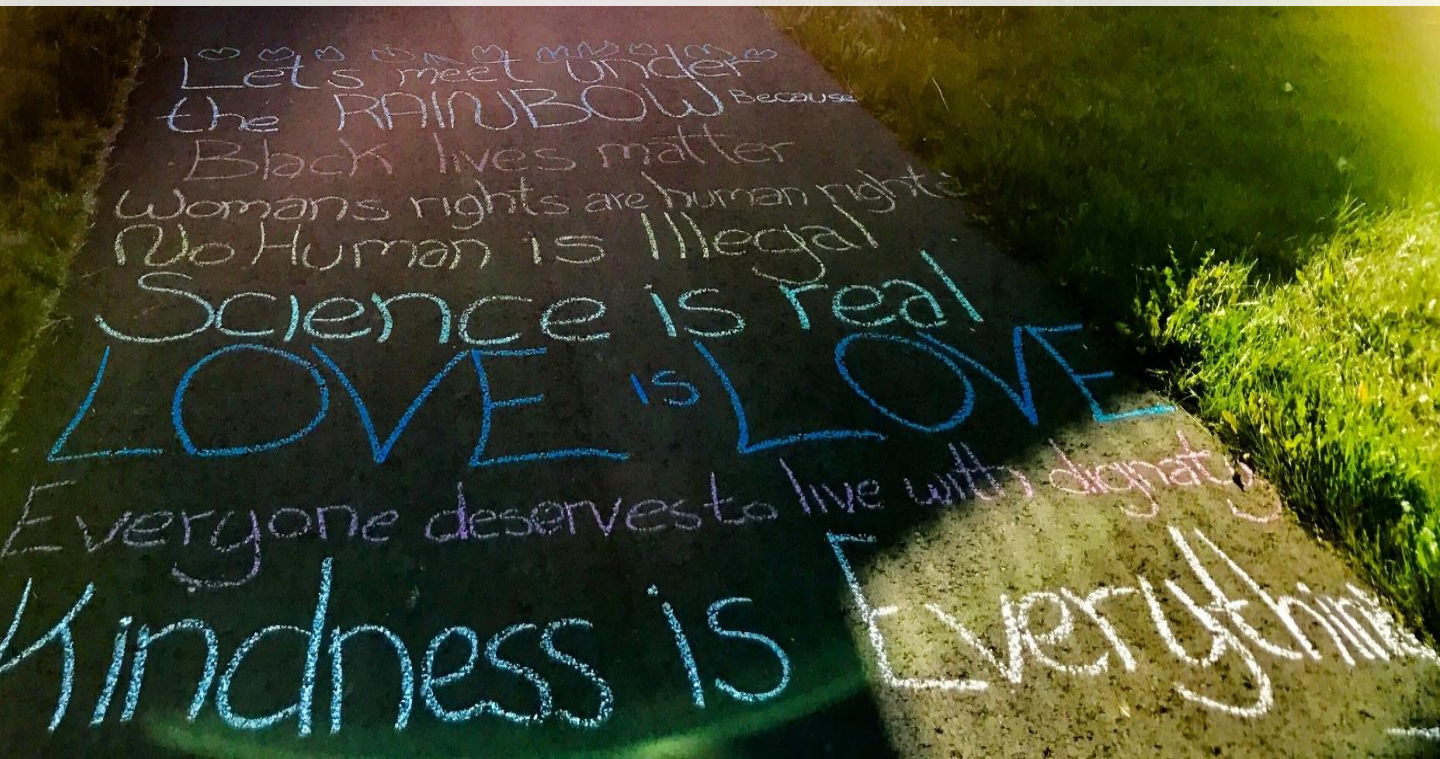 Lets meet under
the RAINBOW Because
Black lives matter
Womans rights are human rights
No Human is Illegal
Science is real
LOVE is LOVE
Everyone deserves to live with dignaty
Kindness is Everything